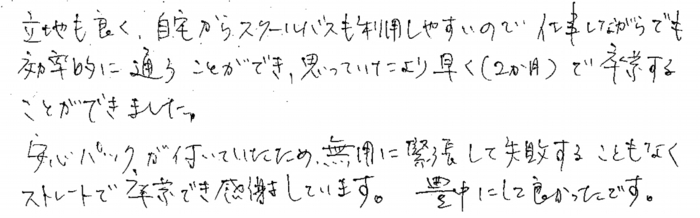 立地も良く、自宅からスクールバスも利用しやすいので 仕事しながらでも
効率的に通うことができ、思っていたより早く(2か月)で卒業する
ことができました。
安心パックが付いていたため、無用に緊張して失敗することもなく
ストレートで卒業でき感謝しています。 豊中にして良かったです。